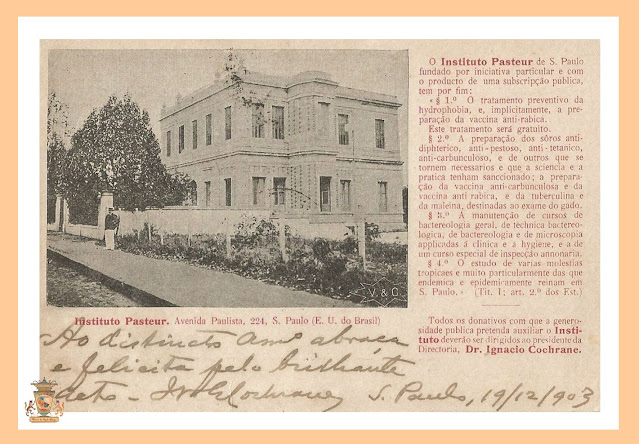 O Instituto Pasteur de S. Paulo
fundado por iniciativa particular e com
o producto de uma subscripção publica,
tem por fim:
«§ 1.º O tratamento preventivo da
hydrophobia, e, implicitamente, a prepa-
ração da vaccina anti-rabica.
Este tratamento será gratuito.
§ 2.º A preparação dos sôros anti-
diphterico, anti-pestoso, anti-tetanico,
anti-carbunculoso, e de outros que se
tornem necessarios e que a sciencia e a
pratica tenham sanccionado; a prepara-
ção da vaccina anti-carbunculosa e da
vaccina anti rabica, e da tuberculina e
da maleina, destinadas ao exame do gado.
§ 3.º A manutenção de cursos de
bactereologia geral, de technica bactereo-
logica, de bactereologia e de microscopia
applicadas á clinica e á hygiene, e a de
um curso especial de inspecção annonaria.
§ 4.º O estudo de varias molestias
tropicaes e muito particularmente das que
endemica e epidemicamente reinam em
S. Paulo.» (Tit. I; art. 2.º dos Est.)
Todos os donativos com que a genero-
sidade publica pretenda auxiliar o Insti-
tuto deverão ser dirigidos ao presidente da
Directoria, Dr. Ignacio Cochrane.
V & C
Instituto Pasteur. Avenida Paulista, 224, S. Paulo (E. U. do Brasil)
Ao distincto Amº abraça
e felicita pelo brilhante
acto - Cochrane S. Paulo, 19/12/903